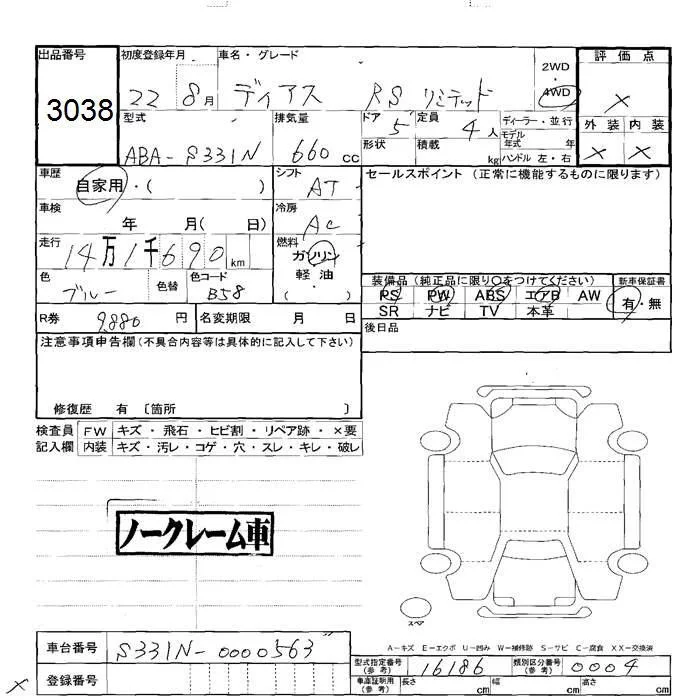 出品番号 初度登録年月 車名・グレード 評価点
3038 22 8月 ディアス RSリミテッド 2WD 4WD ×
型式 排気量 ドア 定員 ディーラー・並行 外装 内装
ABA-S331N 660cc 5 4人 モデル年式 年 × ×
形状 積載 kg ハンドル 左・右
車歴 シフト セールスポイント(正常に機能するものに限ります)
自家用・( ) AT
車検 冷房
年 月( 日) AC
走行 燃料
14万1千690km ガソリン
軽油
色 色替 色コード ( )
ブルー B58
装備品(純正品に限り〇をつけてください) 新車保証書
PS PW ABS エアB AW 有・無
SR ナビ TV 本革
R券 9,880円 名変期限 月 日
後日品
注意事項申告欄(不具合内容等は具体的に記入して下さい)
修復歴 有〔箇所 〕
検査員 FW キズ・飛石・ヒビ割・リペア跡・×要
記入欄 内装 キズ・汚レ・コゲ・穴・スレ・キレ・破レ
ノークレーム車
スペア
A-キズ E-エクボ U-凹み W-補修跡 S-サビ C-腐食 XX-交換済
車台番号 S331N-0000563
型式指定番号(参考) 16186 類別区分番号(参考) 0004
× 登録番号
車庫証明用(参考) 長さ cm 幅 cm 高さ cm